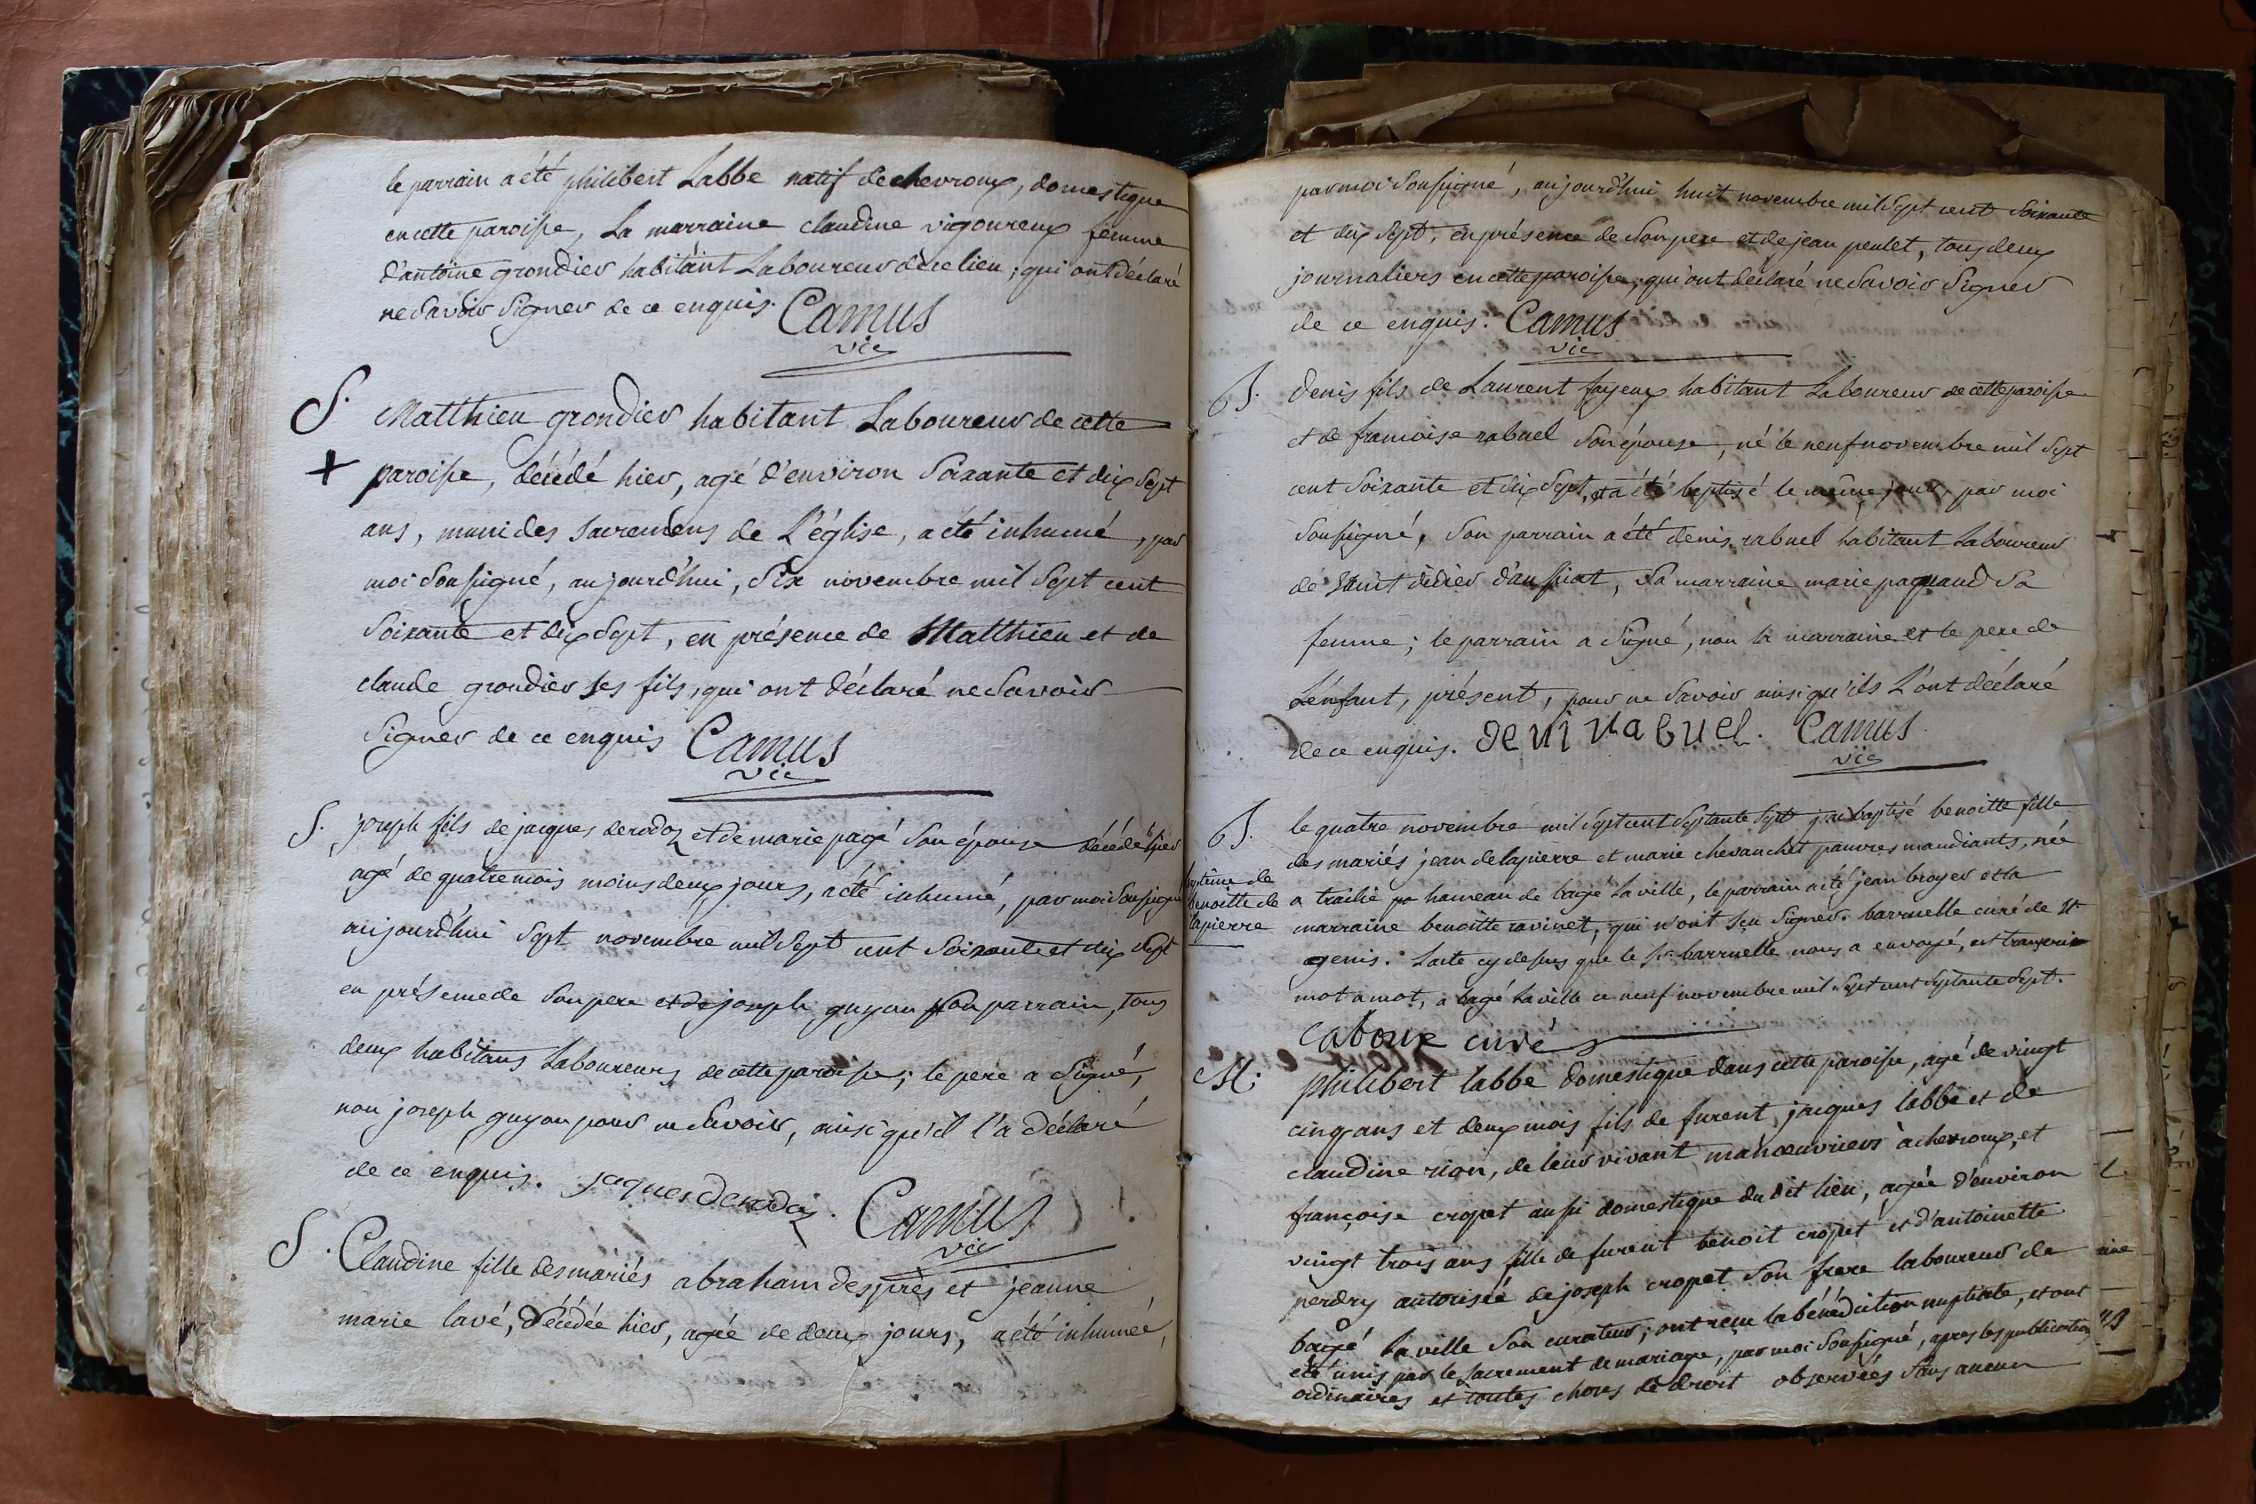 le parrain a été philibert Labbe natif de chevroux, domestique
en cette paroisse, La marraine claudine vigoureux femme
d'antoine grondier habitant Laboureur de ce lieu ; qui ont déclaré
ne savoir signer de ce enquis. Camus
vic
S. Matthieu grondier habitant Laboureur de cette
+ paroisse, décédé hier, agé d'environ soixante et dix sept
ans, muni des sacremens de L'église, a été inhumé, par
moi soussigné, aujourd'hui, six novembre mil sept cent
soixante et dix sept, en présence de Matthieu et de
claude grondier ses fils, qui ont déclaré ne savoir
signer de ce enquis Camus
vic
S. joseph fils de jacques derodoz et de marie pagé son épouse décédé hier
agé de quatre mois moins deux jours, a été inhumé, par moi soussigné
aujourd'hui sept novembre mil sept cent soixante et dix sept
en présence de son pere et de joseph guyon son parrain, tous
deux habitans Laboureurs de cette paroisse ; le pere a signé,
non joseph guyon pour ne savoir, ainsi qu'il l'a déclaré
de ce enquis. jaques derodoz. Camus
vic
S. Claudine fille des mariés abraham desprès et jeanne
marie lavé, décédée hier, agée de deux jours, a été inhumée,
par moi soussigné, aujourd'hui huit novembre mil sept cent soixante
et dix sept, en présence de son pere et de jean peulet, tous deux
journaliers en cette paroisse, qui ont déclaré ne savoir signer
de ce enquis. Camus
vic
B. Denis fils de Laurent fayeux habitant Laboureur de cette paroisse
et de francoise rabuel son épouse, né le neuf novembre mil sept
cent soixante et dix sept, et a été baptisé le même jour par moi
soussigné, son parrain a été denis rabuel habitant Laboureur
de saint didier d'aussiat, sa marraine marie paquand sa
femme ; le parrain a signé, non la marraine et le pere de
L'enfant, présent, pour ne savoir ainsi qu'ils L'ont déclaré
de ce enquis. deni rabuel. Camus
vic
B. le quatre novembre mil sept cent septante sept j'ai baptisé benoitte fille
des mariés jean delapierre et marie chevauchet pauvres mandiants, née
a hameau de bagé la ville, le parrain a été jean broyer et la
marraine benoitte ravinet, qui n'ont sçu signer. barruelle curé de st
genis. L'acte cy dessus que le sr barruelle nous a envoyé, est transcris
mot a mot, a bagé la ville ce neuf novembre mil sept cent septante sept.
baptême de
benoitte de
lapierre
caboux curé
M. philibert labbe domestique dans cette paroisse, agé de vingt
cinq ans et deux mois, fils de furent jacques labbe et de
claudine rion, de leur vivant manœuvriers à chevroux, et
françoise cropet aussi domestique du dit lieu, agée d'environ
vingt trois ans fille de furent benoit cropet et d'antoinette
perdrix autorisée de joseph cropet son frere laboureur de
bagé la ville son curateur ; ont reçu la bénédiction nuptiale, et ont
été unis par le sacrement de mariage, par moi soussigné, apres les publications
ordinaires et toutes choses de droit observées sans aucun